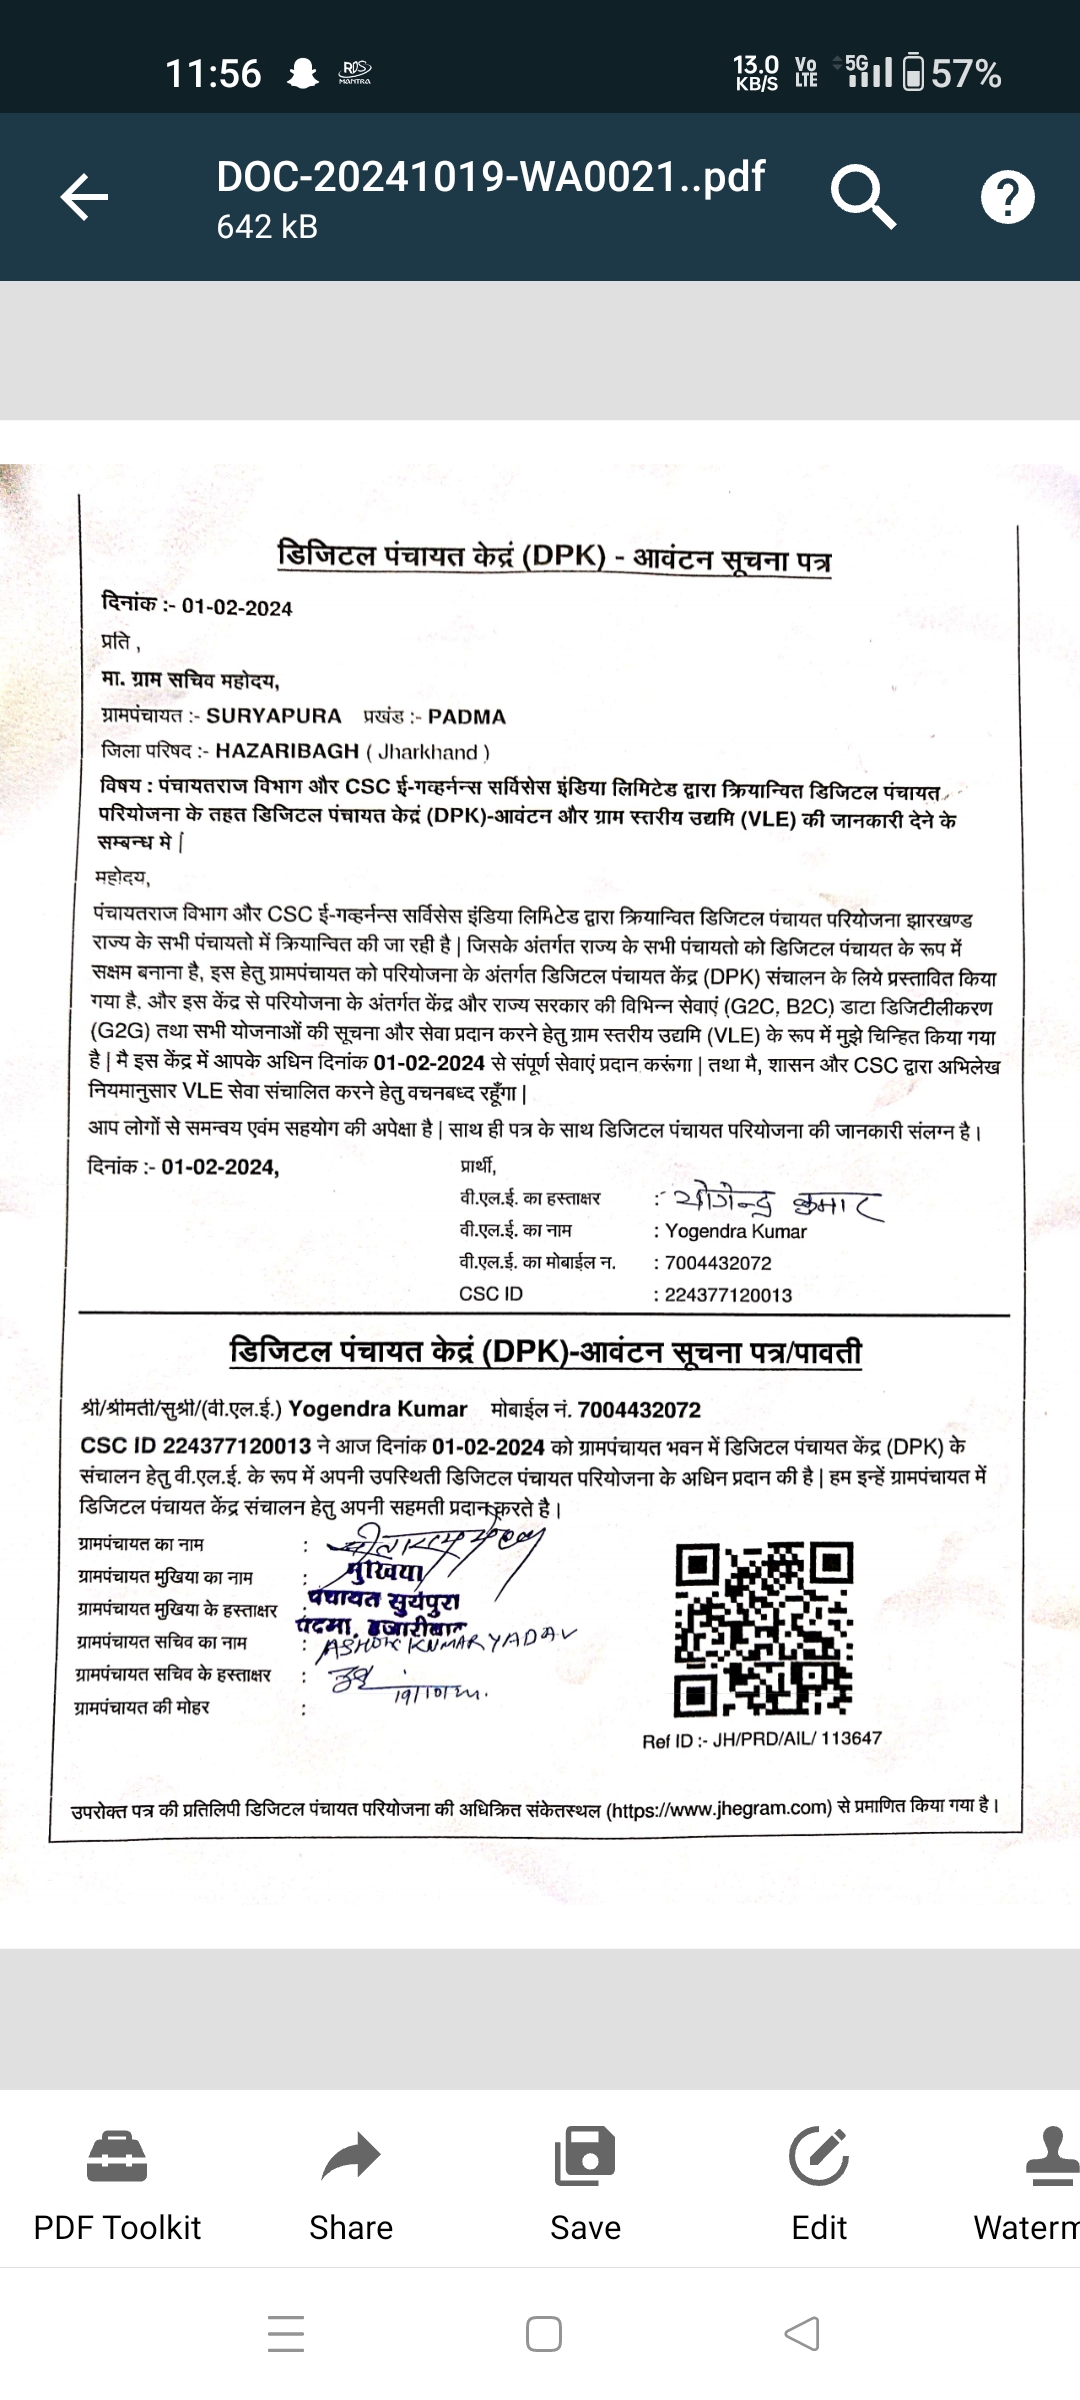 11:56 RDS MANTRA 13.0 KB/S Vo LTE 5G 57%
DOC-20241019-WA0021..pdf
642 kB
डिजिटल पंचायत केद्रं (DPK) - आवंटन सूचना पत्र
दिनांक :- 01-02-2024
प्रति ,
मा. ग्राम सचिव महोदय,
ग्रामपंचायत :- SURYAPURA प्रखंड :- PADMA
जिला परिषद :- HAZARIBAGH ( Jharkhand )
विषय : पंचायतराज विभाग और CSC ई-गव्हर्नन्स सर्विसेस इंडिया लिमिटेड द्वारा क्रियान्वित डिजिटल पंचायत
परियोजना के तहत डिजिटल पंचायत केद्रं (DPK)-आवंटन और ग्राम स्तरीय उद्यमि (VLE) की जानकारी देने के
सम्बन्ध मे |
महोदय,
पंचायतराज विभाग और CSC ई-गव्हर्नन्स सर्विसेस इंडिया लिमिटेड द्वारा क्रियान्वित डिजिटल पंचायत परियोजना झारखण्ड
राज्य के सभी पंचायतो में क्रियान्वित की जा रही है | जिसके अंतर्गत राज्य के सभी पंचायतो को डिजिटल पंचायत के रूप में
सक्षम बनाना है, इस हेतु ग्रामपंचायत को परियोजना के अंतर्गत डिजिटल पंचायत केंद्र (DPK) संचालन के लिये प्रस्तावित किया
गया है. और इस केंद्र से परियोजना के अंतर्गत केंद्र और राज्य सरकार की विभिन्न सेवाएं (G2C, B2C) डाटा डिजिटीलीकरण
(G2G) तथा सभी योजनाओं की सूचना और सेवा प्रदान करने हेतु ग्राम स्तरीय उद्यमि (VLE) के रूप में मुझे चिन्हित किया गया
है | मै इस केंद्र में आपके अधिन दिनांक 01-02-2024 से संपूर्ण सेवाएं प्रदान करूंगा | तथा मै, शासन और CSC द्वारा अभिलेख
नियमानुसार VLE सेवा संचालित करने हेतु वचनबध्द रहूँगा |
आप लोगों से समन्वय एवंम सहयोग की अपेक्षा है | साथ ही पत्र के साथ डिजिटल पंचायत परियोजना की जानकारी संलग्न है।
दिनांक :- 01-02-2024, प्रार्थी,
वी.एल.ई. का हस्ताक्षर : योगेन्द्र कुमार
वी.एल.ई. का नाम : Yogendra Kumar
वी.एल.ई. का मोबाईल न. : 7004432072
CSC ID : 224377120013
डिजिटल पंचायत केद्रं (DPK)-आवंटन सूचना पत्र/पावती
श्री/श्रीमती/सुश्री/(वी.एल.ई.) Yogendra Kumar मोबाईल नं. 7004432072
CSC ID 224377120013 ने आज दिनांक 01-02-2024 को ग्रामपंचायत भवन में डिजिटल पंचायत केंद्र (DPK) के
संचालन हेतु वी.एल.ई. के रूप में अपनी उपस्थिती डिजिटल पंचायत परियोजना के अधिन प्रदान की है | हम इन्हें ग्रामपंचायत में
डिजिटल पंचायत केंद्र संचालन हेतु अपनी सहमती प्रदान करते है।
ग्रामपंचायत का नाम :
ग्रामपंचायत मुखिया का नाम : मुखिया
ग्रामपंचायत मुखिया के हस्ताक्षर : पंचायत सुर्यपुरा
पदमा, हजारीबाग
ग्रामपंचायत सचिव का नाम : ASHOK KUMAR YADAV
ग्रामपंचायत सचिव के हस्ताक्षर :
ग्रामपंचायत की मोहर :
Ref ID :- JH/PRD/AIL/ 113647
उपरोक्त पत्र की प्रतिलिपी डिजिटल पंचायत परियोजना की अधिक्रित संकेतस्थल (https://www.jhegram.com) से प्रमाणित किया गया है।
PDF Toolkit Share Save Edit Waterm